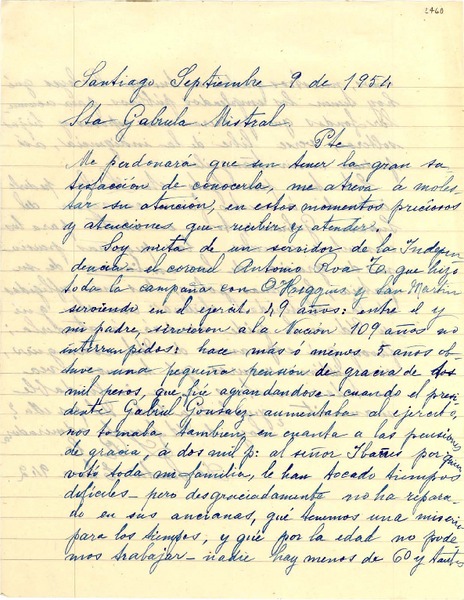 2460
Santiago, Septiembre 9 de 1954
Sta Gabriela Mistral
Pte
Me perdonará que sin tener la gran sa
tisfacción de conocerla, me atreva á moles
tar su atención, en estos momentos preciosos
y atenciones que recibir y atender.
Soy nieta de un servidor de la Indepen
dencia - el coronel Antonio Roa C. que hizo
toda la campaña con O'Higgins y San Martin
serviendo en el ejército 49 años: entre el y
mi padre, servieron a la Nación 109 años no
interrumpidos: hace mas ó ménos 5 años ob
tuve una pequeña pensión de gracia de dos
mil pesos, que fué agrandandose - cuando el presi
dente Gabriel González aumentaba al ejército,
nos tomaba tambien en cuenta a las pensiones
de gracia, á dos mil p: al señor Ibañes por quien
votó toda mi familia, le han tocado tiempos
dificiles - pero desgraciadamente no ha repara
do en sus ancianas, qué tenemos una miseria
para los tiempos, y que por la edad no pode
mos trabajar - nadie hay menos de 60 y tantos